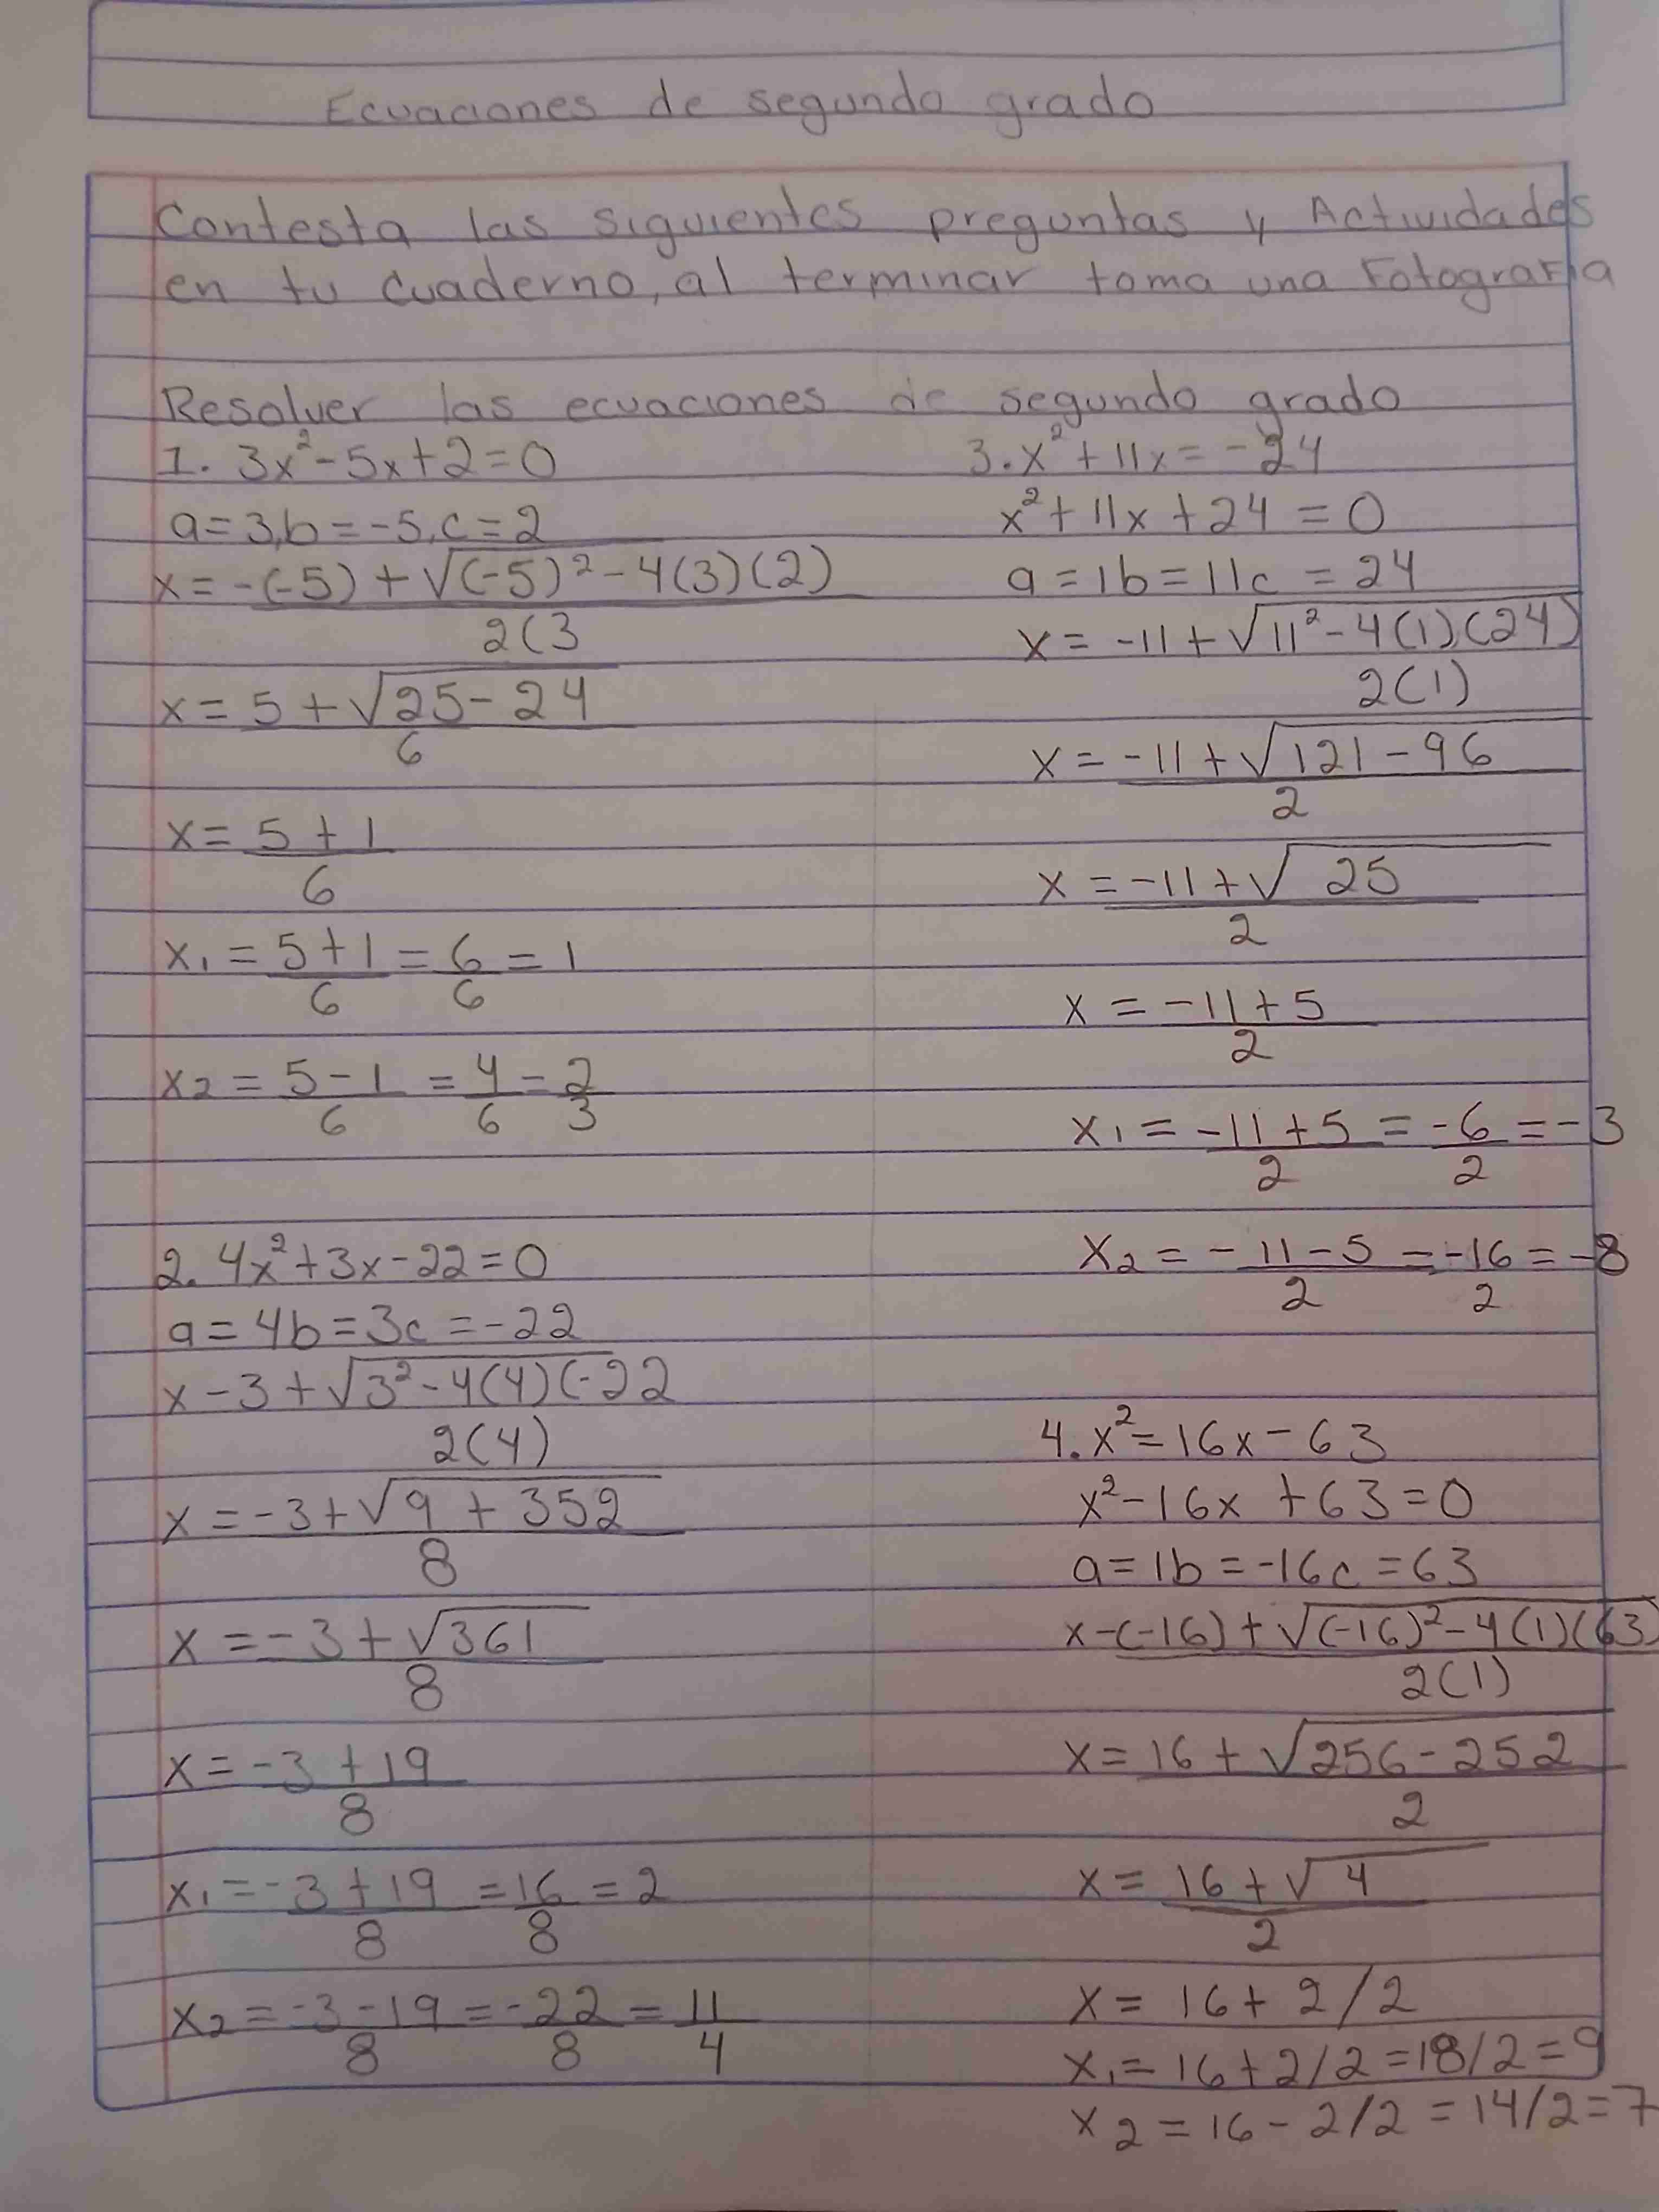 Ecuaciones de segundo grado
Contesta las siguientes preguntas y Actividades
en tu cuaderno, al terminar toma una Fotografia
Resolver las ecuaciones de segundo grado
1. 3x²-5x+2=0
a=3,b=-5,c=2
x=-(-5)+√(-5)²-4(3)(2)
2(3
x=5+√25-24
6
x=5+1
6
x₁=5+1=6=1
6 6
x2=5-1=4=2
6 6 3
2. 4x²+3x-22=0
a=4b=3c=-22
x-3+√3²-4(4)(-22
2(4)
x=-3+√9+352
8
x=-3+√361
8
x=-3+19
8
x₁=-3+19=16=2
8 8
x2=-3-19=-22=11
8 8 4
3. x²+11x=-24
x²+11x+24=0
a=1b=11c=24
x=-11+√11²-4(1)(24)
2(1)
x=-11+√121-96
2
x=-11+√25
2
x=-11+5
2
x₁=-11+5=-6=-3
2 2
x2=-11-5=-16=-8
2 2
4. x²=16x-63
x²-16x+63=0
a=1b=-16c=63
x-(-16)+√(-16)²-4(1)(63)
2(1)
x=16+√256-252
2
x=16+√4
2
x=16+2/2
x₁=16+2/2=18/2=9
x2=16-2/2=14/2=7